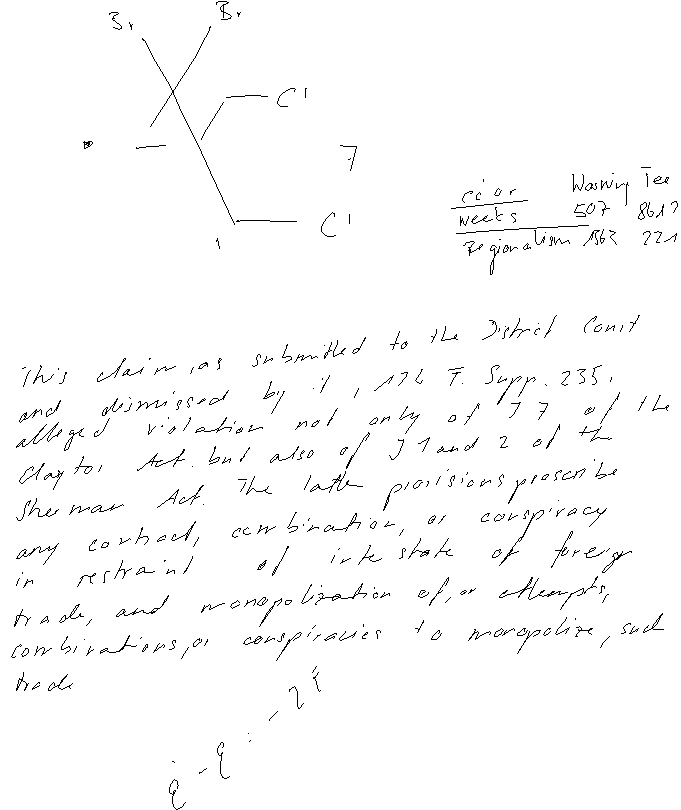 Br Br
Cl
7
Cl
1
Washing Tee
weeks 507
Regionalism 1362 221
This claim, as submitted to the District Court
and dismissed by it, 126 F. Supp. 235,
alleged violation not only of § 7 of the
Clayton Act. but also of § 1 and 2 of the
Sherman Act. The latter provisions proscribe
any contract, combination, or conspiracy
in restraint of interstate of foreign
trade, and monopolization of, or attempts,
combinations, or conspiracies to monopolize, such
trade